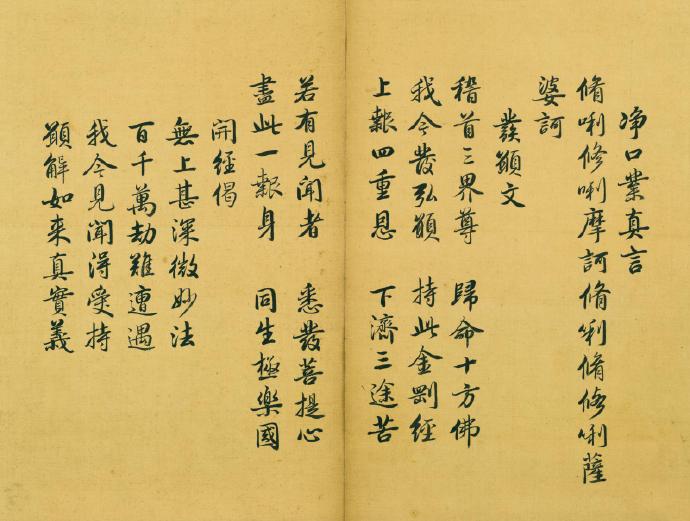 淨口業真言
脩唎修唎摩訶脩唎脩修唎薩
婆訶
發願文
稽首三界尊　歸命十方佛
我今發弘願　持此金剛經
上報四重恩　下濟三途苦
若有見聞者　悉發菩提心
盡此一報身　同生極樂國
開經偈
無上甚深微妙法
百千萬劫難遭遇
我今見聞得受持
願解如来真實義